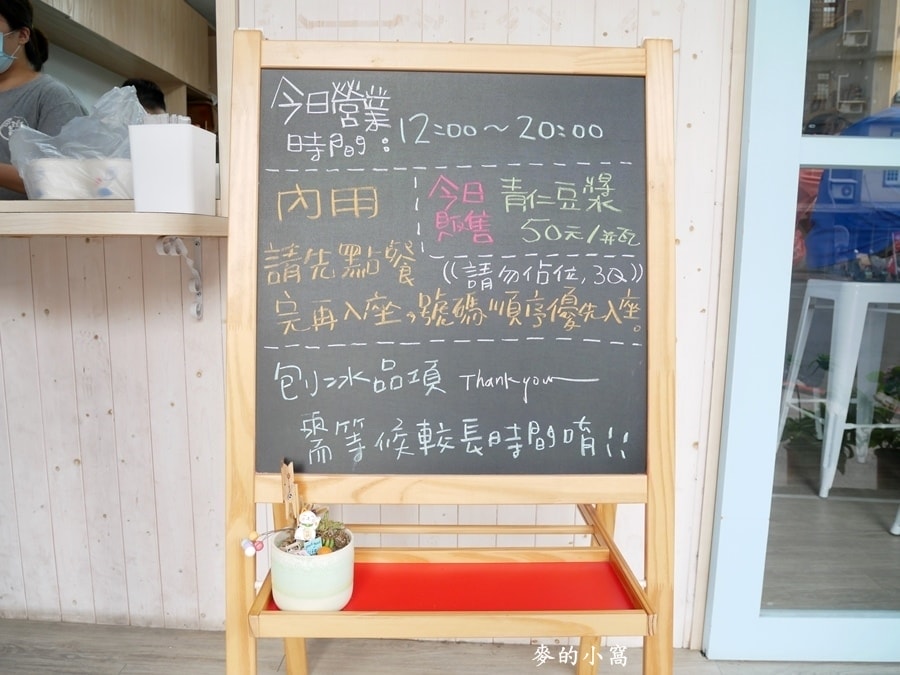 今日營業
時間：12:00～20:00
內用
今日
販售
青仁豆漿
50元/瓶
((請勿佔位,3Q))
請先點餐
完再入座,號碼順序優先入座。
刨冰品項 Thank you
需等候較長時間唷!!
麥的小窩